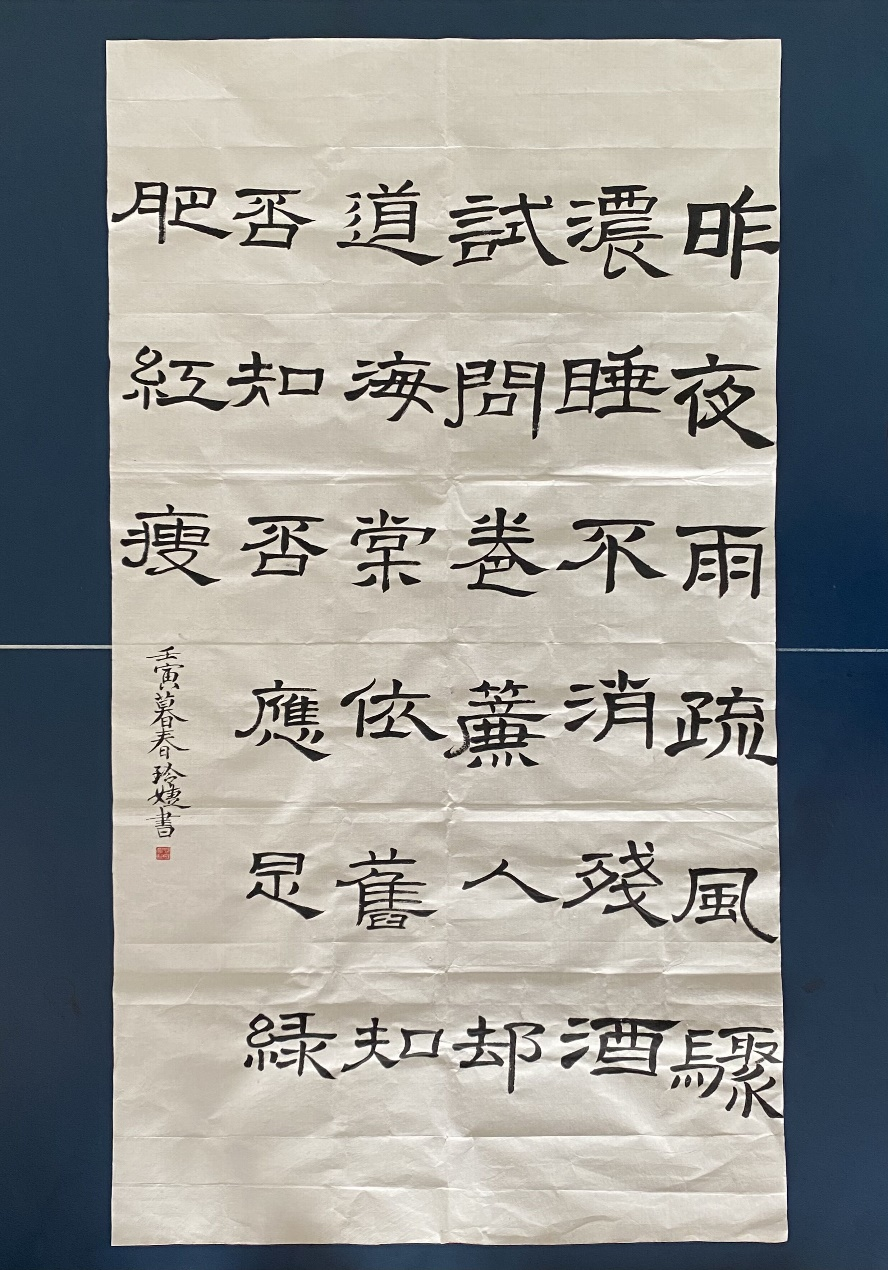 昨夜雨疏風驟
濃睡不消殘酒
試問卷簾人却
道海棠依舊知
否知否應是緑
肥紅瘦
壬寅暮春玲婕書